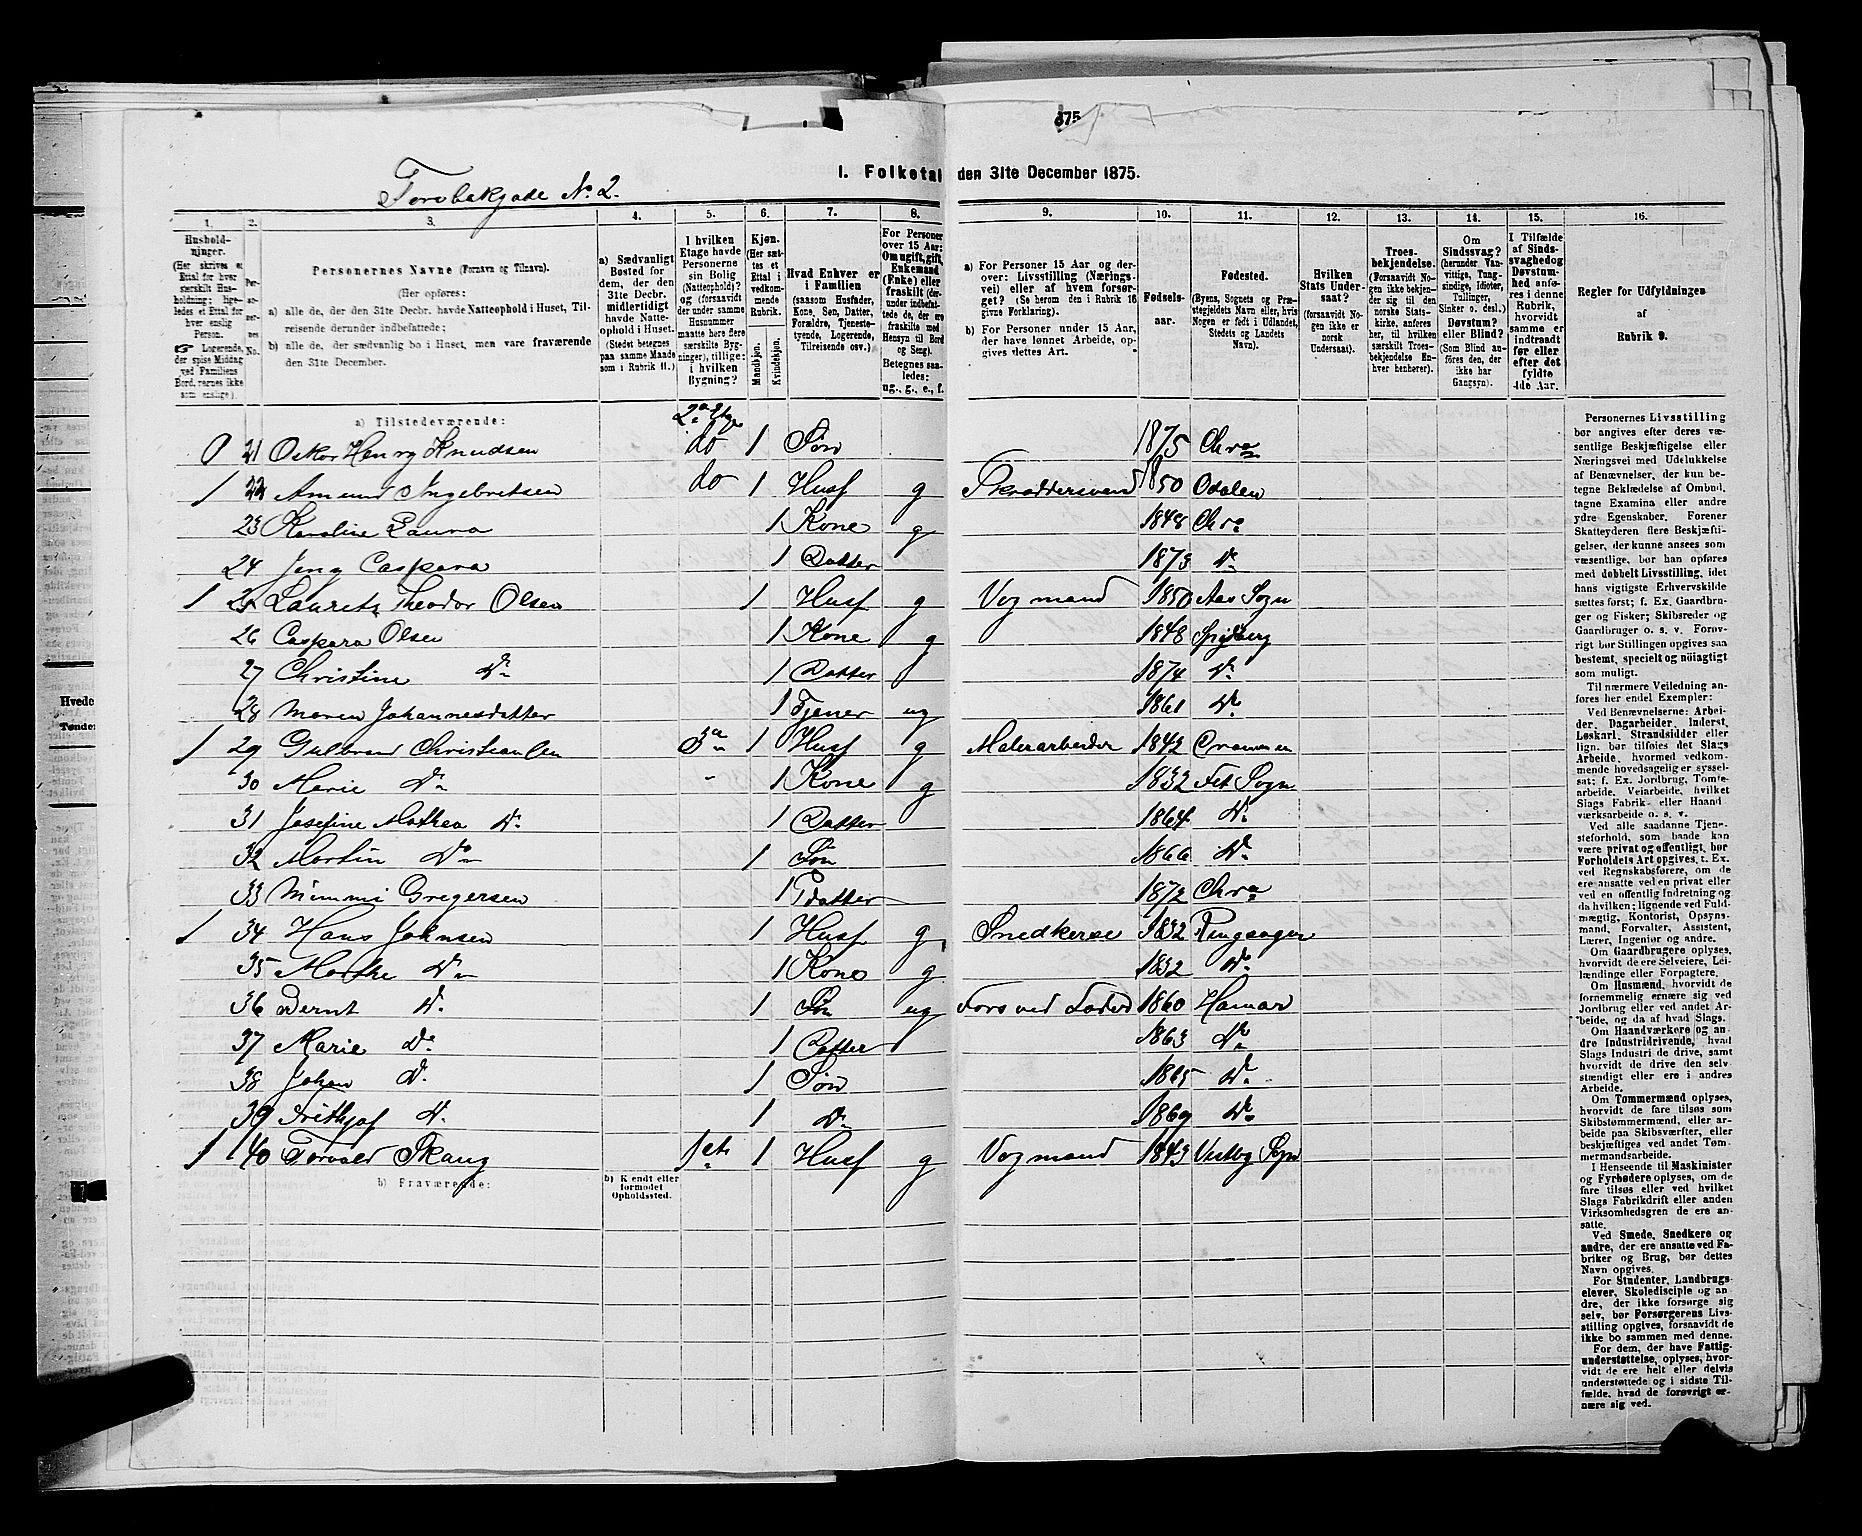 875
Torvbakgade No 2.
I. Folketal den 31te December 1875.
1. 2. 3. 4. 5. 6. 7. 8. 9. 10. 11. 12. 13. 14. 15. 16.
Hushold-
ninger.
(Her skrives et
Ettal for hver
særskilt Hus-
holdning; lige-
ledes et Ettal for
hver enslig
Person.
☞ Logerende,
der spise Middag
ved Familiens
Bord, regnes ikke
som enslige).
Personernes Navne (Fornavn og Tilnavn).
(Her opføres:
a) alle de, der den 31te Decbr. havde Natteophold i Huset, Til-
reisende derunder indbefattede;
b) alle de, der sædvanlig bo i Huset, men vare fraværende
den 31te December.
a) Sædvanligt
Bosted for
dem, der den
31te Decbr.
midlertidigt
havde Natte-
ophold i Huset.
(Stedet betegnes
paa samme Maade
som i Rubrik 11.)
I hvilken
Etage havde
Personerne
sin Bolig
(Natteophold)?
og (forsaavidt
der under samme
Husnummer
maatte høre flere
særskilte Byg-
ninger), tillige:
i hvilken
Bygning?
Kjøn.
(Her sæt-
tes et
Ettal i
vedkom-
mende
Rubrik.
Mandkjøn.
Kvindekjøn.
Hvad Enhver er
i Familien
(saasom Husfader,
Kone, Søn, Datter,
Forældre, Tjeneste-
tyende, Logerende,
Tilreisende osv.)
For Personer
over 15 Aar:
Om ugift, gift,
Enkemand
(Enke) eller
fraskilt (der-
under indbefat-
tede de, der ere
fraskilte med
Hensyn til Bord
og Seng).
Betegnes saa-
ledes:
ug., g., e., f.
a) For Personer 15 Aar og der-
over: Livsstilling (Nærings-
vei) eller af hvem forsør-
get? (Se herom den i Rubrik 16
givne Forklaring).
b) For Personer under 15 Aar,
der have lønnet Arbeide, op-
gives dettes Art.
Fødsels-
aar.
Fødested.
(Byens, Sognets og Præ-
stegjeldets Navn eller, hvis
Nogen er født i Udlandet,
Stedets og Landets
Navn).
Hvilken
Stats Under-
saat?
(forsaavidt No-
gen ikke er
norsk
Undersaat).
Troes-
bekjendelse.
(Forsaavidt No-
gen ikke bekjen-
der sig til den
norske Stats-
kirke, anføres
her, til hvilken
særskilt Troes-
bekjendelse En-
hver henhører).
Om
Sindssvag?
(herunder Van-
vittige, Tung-
sindige, Idioter,
Tullinger,
Sinker o. desl.)
Døvstum?
eller Blind?
(Som Blind an-
føres den, der
ikke har
Gangsyn).
I Tilfælde
af Sinds-
svaghed og
Døvstum-
hed anfø-
res i denne
Rubrik,
hvorvidt
samme er
indtraadt
før eller
efter det
fyldte
4de Aar.
Regler for Udfyldningen
af
Rubrik 9.
a) Tilstedeværende:
2a Etge
0 21 Oskar Henry Knudsen do 1 Søn 1875 Chra
1 22 Amund Ingebretsen do 1 Husf g Skræddersvend 1850 Odalen
23 Karoline Laura 1 Kone g 1848 Chra
24 Jeny Caspara 1 Datter 1873 Do
1 25 Laurits Theodor Olsen 1 Husf g Vogmand 1850 Aas Sogn
26 Caspara Olsen 1 Kone g 1848 Spydberg
27 Christine Do 1 Datter 1874 Do
28 Maren Johannesdatter 1 Tjener ug 1861 Do
1 29 Gulbrand Christiansen 3a 1 Husf g Malerarbeider 1842 Drammen
30 Marie Do " 1 Kone g 1832 Fet Sogn
31 Josefine Mathea Do 1 Datter 1864 Do
32 Martin Do 1 Søn 1866 Do
33 Mimmi Gregersen 1 Pdatter 1872 Chra
1 34 Hans Johnsen 1 Husf g Snedkerse 1832 Ringsager
35 Marthe Do 1 Kone g 1832 Do
36 Bernt Do 1 Søn ug Fors ved Faderd 1860 Hamar
37 Marie Do 1 Datter 1863 Do
38 Johan Do 1 Søn 1865 Do
39 Frithjof Do 1 Do 1869 Do
1 40 Torvald Skaug 1ste 1 Husf g Vogmand 1843 Vestby Sogn
b) Fraværende:
b) Kjendt eller
formodet
Opholdssted.
Personernes Livsstilling
bør angives efter deres væ-
sentlige Beskjæftigelse eller
Næringsvei med Udelukkelse
af Benævnelser, der kun be-
tegne Beklædelse af Ombud,
tagne Examina eller andre
ydre Egenskaber. Forener
Skatteyderen flere Beskjæfti-
gelser, der kunne ansees som
væsentlige, bør han opføres
med dobbelt Livsstilling, idet
hans vigtigste Erhvervskilde
sættes først; f. Ex. Gaardbru-
ger og Fisker; Skibsreder og
Gaardbruger o. s. v. Forøv-
rigt bør Stillingen opgives saa
bestemt, specielt og nöiagtigt
som muligt.
Til nærmere Veiledning an-
føres her endel Exempler:
Ved Benævnelserne: Arbei-
der, Dagarbeider, Inderst,
Løskarl, Strandsidder eller
lign. bør tilføies det Slags
Arbeide, hvormed vedkom-
mende hovedsagelig er syssel-
sat; f. Ex. Jordbrug, Tomte-
arbeide, Veiarbeide, hvilket
Slags Fabrik- eller Haand
værksarbeide o. s. v.
Ved alle saadanne Tjene-
steforhold, som baade kan
være privat og offentligt, bør
Forholdets Art opgives, t. Ex.
ved Regnskabsførere, om de
ere ansatte ved en privat eller
ved en offentlig Indretning og
da hvilken; lignende ved Fuld-
mægtig, Kontorist, Opsyns-
mand, Forvalter, Assistent,
Lærer, Ingeniør og andre.
Om Gaardbrugere oplyses,
hvorvidt de ere Selveiere, Lei-
lændinge eller Forpagtere.
Om Husmænd, hvorvidt de
fornemmelig ernære sig ved
Jordbrug eller ved andet Ar-
beide, og da af hvad Slags.
Om Haandværkere og an-
dre Industridrivende, hvad
Slags Industri de drive, samt
hvorvidt de drive den selv-
stændigt eller ere i andres
Arbeide.
Om Tømmermænd oplyses,
hvorvidt de fare tilsøs som
Skibstømmermænd, eller ar-
beide paa Skibsværfter, eller
beskjæftiges ved andet Tøm-
mermandsarbeide.
I Henseende til Maskinister
og Fyrbødere oplyses, om de
fare tilsøs eller ved hvilket
Slags Fabrikdrift eller anden
Virksomhedsgren de ere an-
satte.
Ved Smede, Snedkere og
andre, der ere ansatte ved Fa-
briker og Brug, bør dettes
Navn opgives.
For Studenter, Landbrugs-
elever, Skoledisciple og an-
dre, der ikke forsørge sig
selv, bør Forsørgerens Livs-
stilling opgives, forsaavidt de
ikke bo sammen med denne.
For dem, der have Fattig-
understøttelse, oplyses, hvor-
vidt de ere helt eller delvis
understøttede og i sidste Til-
fælde, hvad de forøvrigt er-
nære sig ved.
Hvede
Tønder